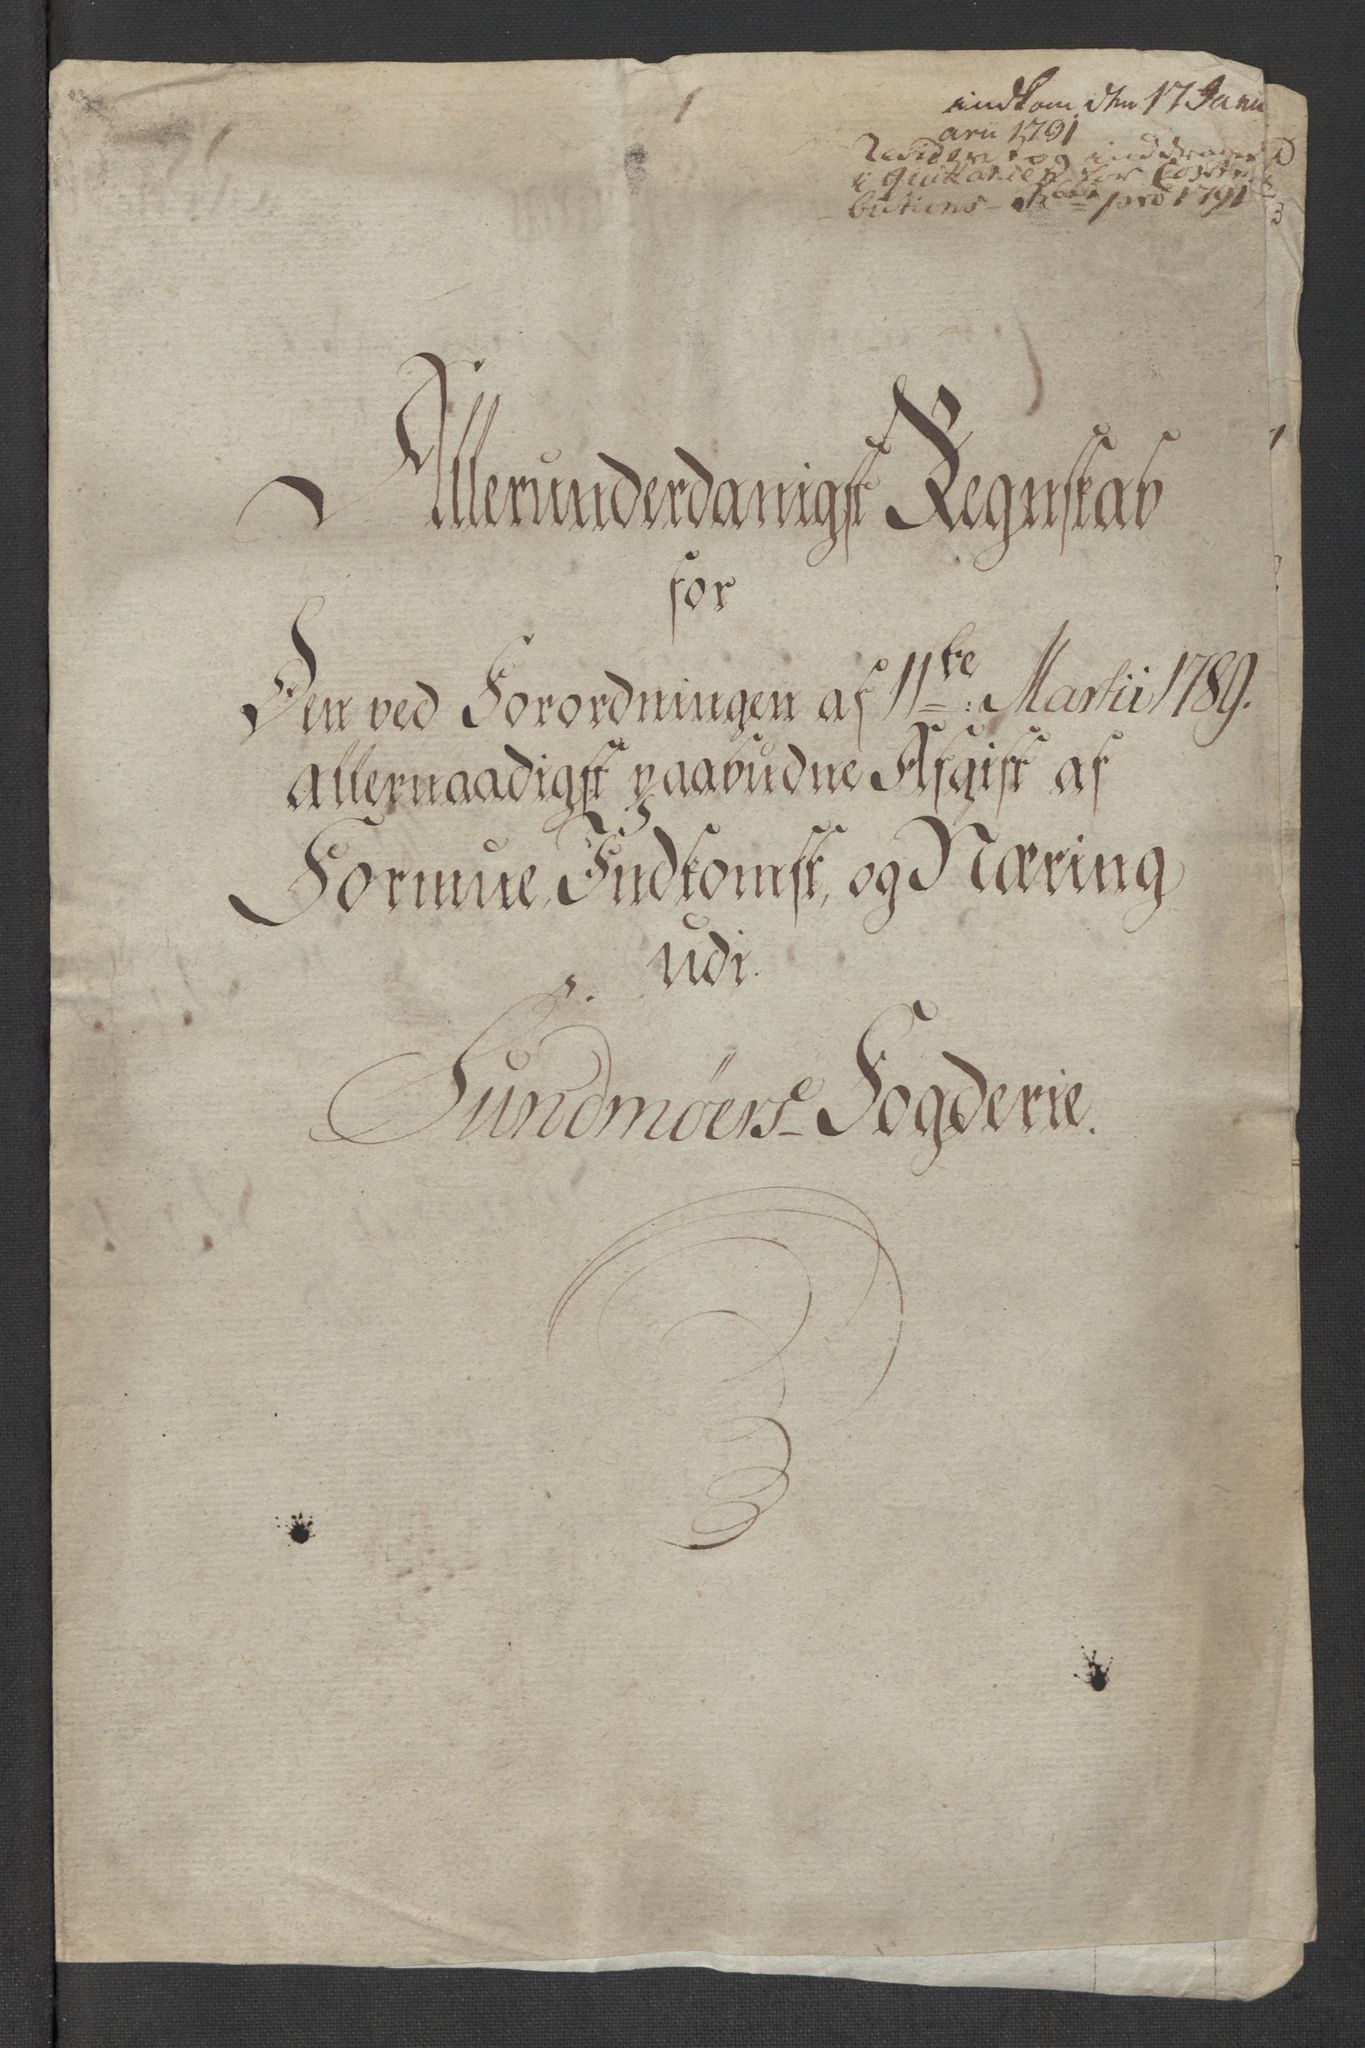 indkom den 17 Janu
arii 1791
Revideret og inddraget
i Quittancen for Contri
butions - pro 1791
Allerunderdanigst Regnskab
for
Den ved Forordningen af 11te Martii 1789.
allernaadigst paabudne Afgift af
Formue, Indkomst, og Næring
udi.
Sundmøers Fogderie.